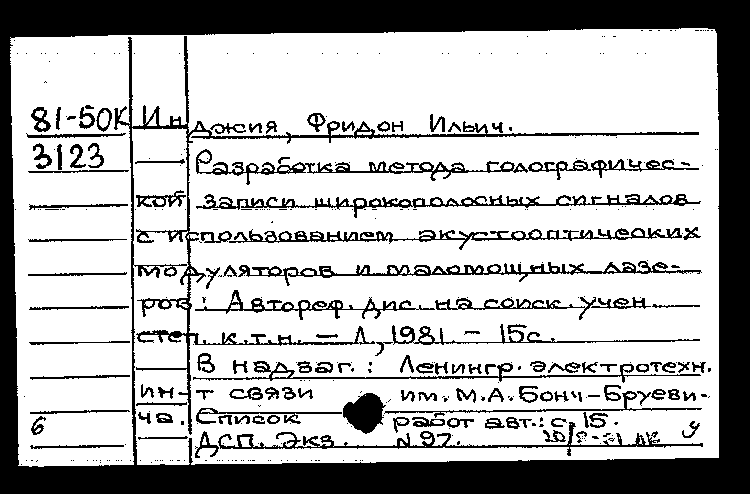 81-50К Инджия, Фридон Ильич.
3123 Разработка метода голографичес-
кой записи широкополосных сигналов
с использованием акустооптических
модуляторов и маломощных лазе-
ров: Автореф. дис. на соиск. учен.
степ. к.т.н. — Л, 1981 - 15с.
В надзаг.: Ленингр. электротехн.
ин-т связи им. М.А. Бонч-Бруеви-
ча. Список работ авт.: с. 15.
6 ДСП. Экз. N 97. у